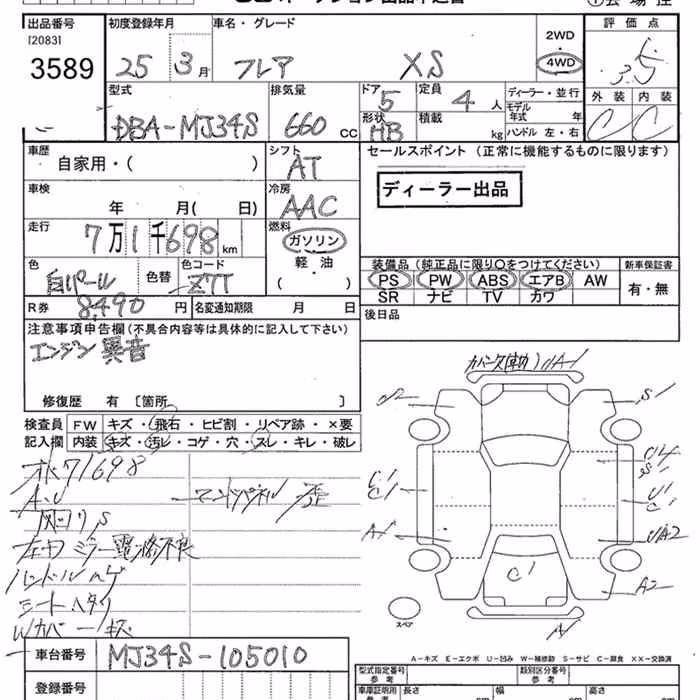 出品番号 初度登録年月 車名・グレード 2WD・4WD 評価点
[2083]
3589 25 3月 フレア XS 3.5
型式 排気量 ドア 5 定員 4人 ディーラー・並行 外装 内装
DBA-MJ34S 660 CC 形状 HB 積載 kg モデル年式 年 ハンドル 左・右 C C
車歴 シフト セールスポイント (正常に機能するものに限ります)
自家用・( ) AT
車検 冷房 ディーラー出品
年 月( 日) AAC
走行 燃料
7万1千698km ガソリン
色 色替 色コード 軽・油 装備品(純正品に限り○をつけてください) 新車保証書
白パール Z7T ( ) PS PW ABS エアB AW 有・無
R券 8,490円 名変通知期限 月 日 SR ナビ TV カワ
注意事項申告欄(不具合内容等は具体的に記入して下さい) 後日品
エンジン異音
修復歴 有 〔箇所 〕
検査員 FW キズ・飛石・ヒビ割・リペア跡・×要
記入欄 内装 キズ・汚レ・コゲ・穴・スレ・キレ・破レ
71698
ハンドルハゲ
Wカバーキズ
A2
S1
U1
C1
A1
UA2
C1
A2
スペア
車台番号 MJ34S-105010
A-キズ E-エクボ U-凹み W-補修跡 S-サビ C-腐食 XX-交換済
登録番号
型式指定番号 類別区分番号
参考
車庫証明用 長さ 幅 高さ
参考